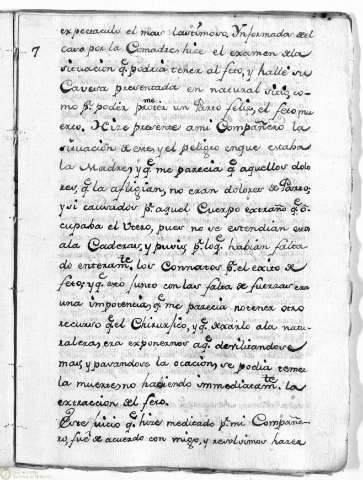 7
expectaculo el mas lastimoso, Informada del
caso por la Comadre hice el examen de la
situacion q.e podria tener al feto, y hallé su
Cavesa presentada en natural sitio, co-
mo p.a poder prome terme un Parto feliz, el feto mu
erto, Hize presente a mi Compañero la
situacion de este, y el peligro en que estaba
la Madre, y q.e me parecia q.e aquellos dolo
res, q.e la afligian, no eran dolores de Parto,
y si causados p.r aquel Cuerpo extraño q.e o-
cupaba el Utero, pues no se estendian
a la Caderas, y puvis p.r lo q.e habian falta
do enteram.te los Connatos p.a el exito de
feto; y q.e esto junto con las falta de fuerzas era
una impotencia, q.e me parecia no tener otro
recurso q.e el Chirurfico, y q.e dexarlo a la natu
raleza, era exponernos a q.e devilitandose
mas, y pasandose la ocacion, se podia temer
la muerte, no haciendo immediatam.te la
extraccion del feto.
Este juicio q.e hize meditado p.r mi Compañe-
ro, fué de acuerdo con migo, y resolvimos hazer